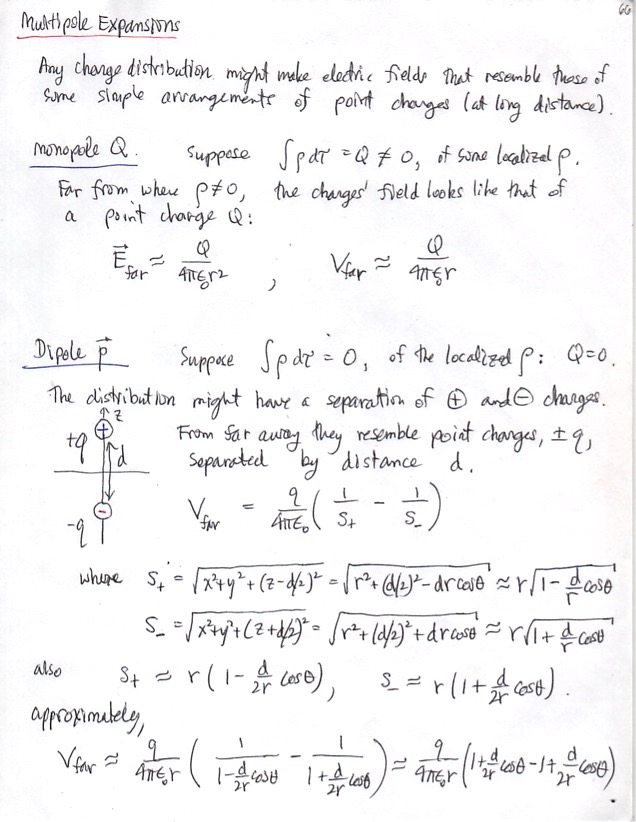 66
Multipole Expansions
Any charge distribution might make electric fields that resemble those of
some simple arrangements of point charges (at long distance).
monopole Q. Suppose ∫ρdτ = Q ≠ 0, of some localized ρ.
Far from where ρ≠0, the charges' field looks like that of
a point charge Q:
E⃗far ≈ Q/4πε₀r² , Vfar ≈ Q/4πε₀r
Dipole p⃗ Suppose ∫ρdτ = 0, of the localized ρ: Q=0.
The distribution might have a separation of ⊕ and ⊖ charges.
z
+q + d From far away they resemble point charges, ±q,
separated by distance d.
-q - Vfar = q/4πε₀ (1/S₊ - 1/S₋)
where S₊ = √(x²+y²+(z-d/2)²) = √(r²+(d/2)²-dr cosθ) ≈ r√(1-d/r cosθ)
S₋ = √(x²+y²+(z+d/2)²) = √(r²+(d/2)²+dr cosθ) ≈ r√(1+d/r cosθ)
also S₊ ≈ r(1-d/2r cosθ), S₋ ≈ r(1+d/2r cosθ).
approximately,
Vfar ≈ q/4πε₀r (1/(1-d/2r cosθ) - 1/(1+d/2r cosθ)) ≈ q/4πε₀r (1+d/2r cosθ-1+d/2r cosθ)